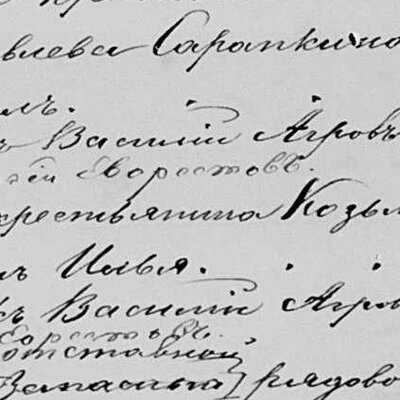 влева Сарапкина
лъ.
ъ Василій Агровъ
гей Хворостовъ.
крестьянина Козьм
лъ Илья.
ъ Василій Агров
отставной
Запасный рядово